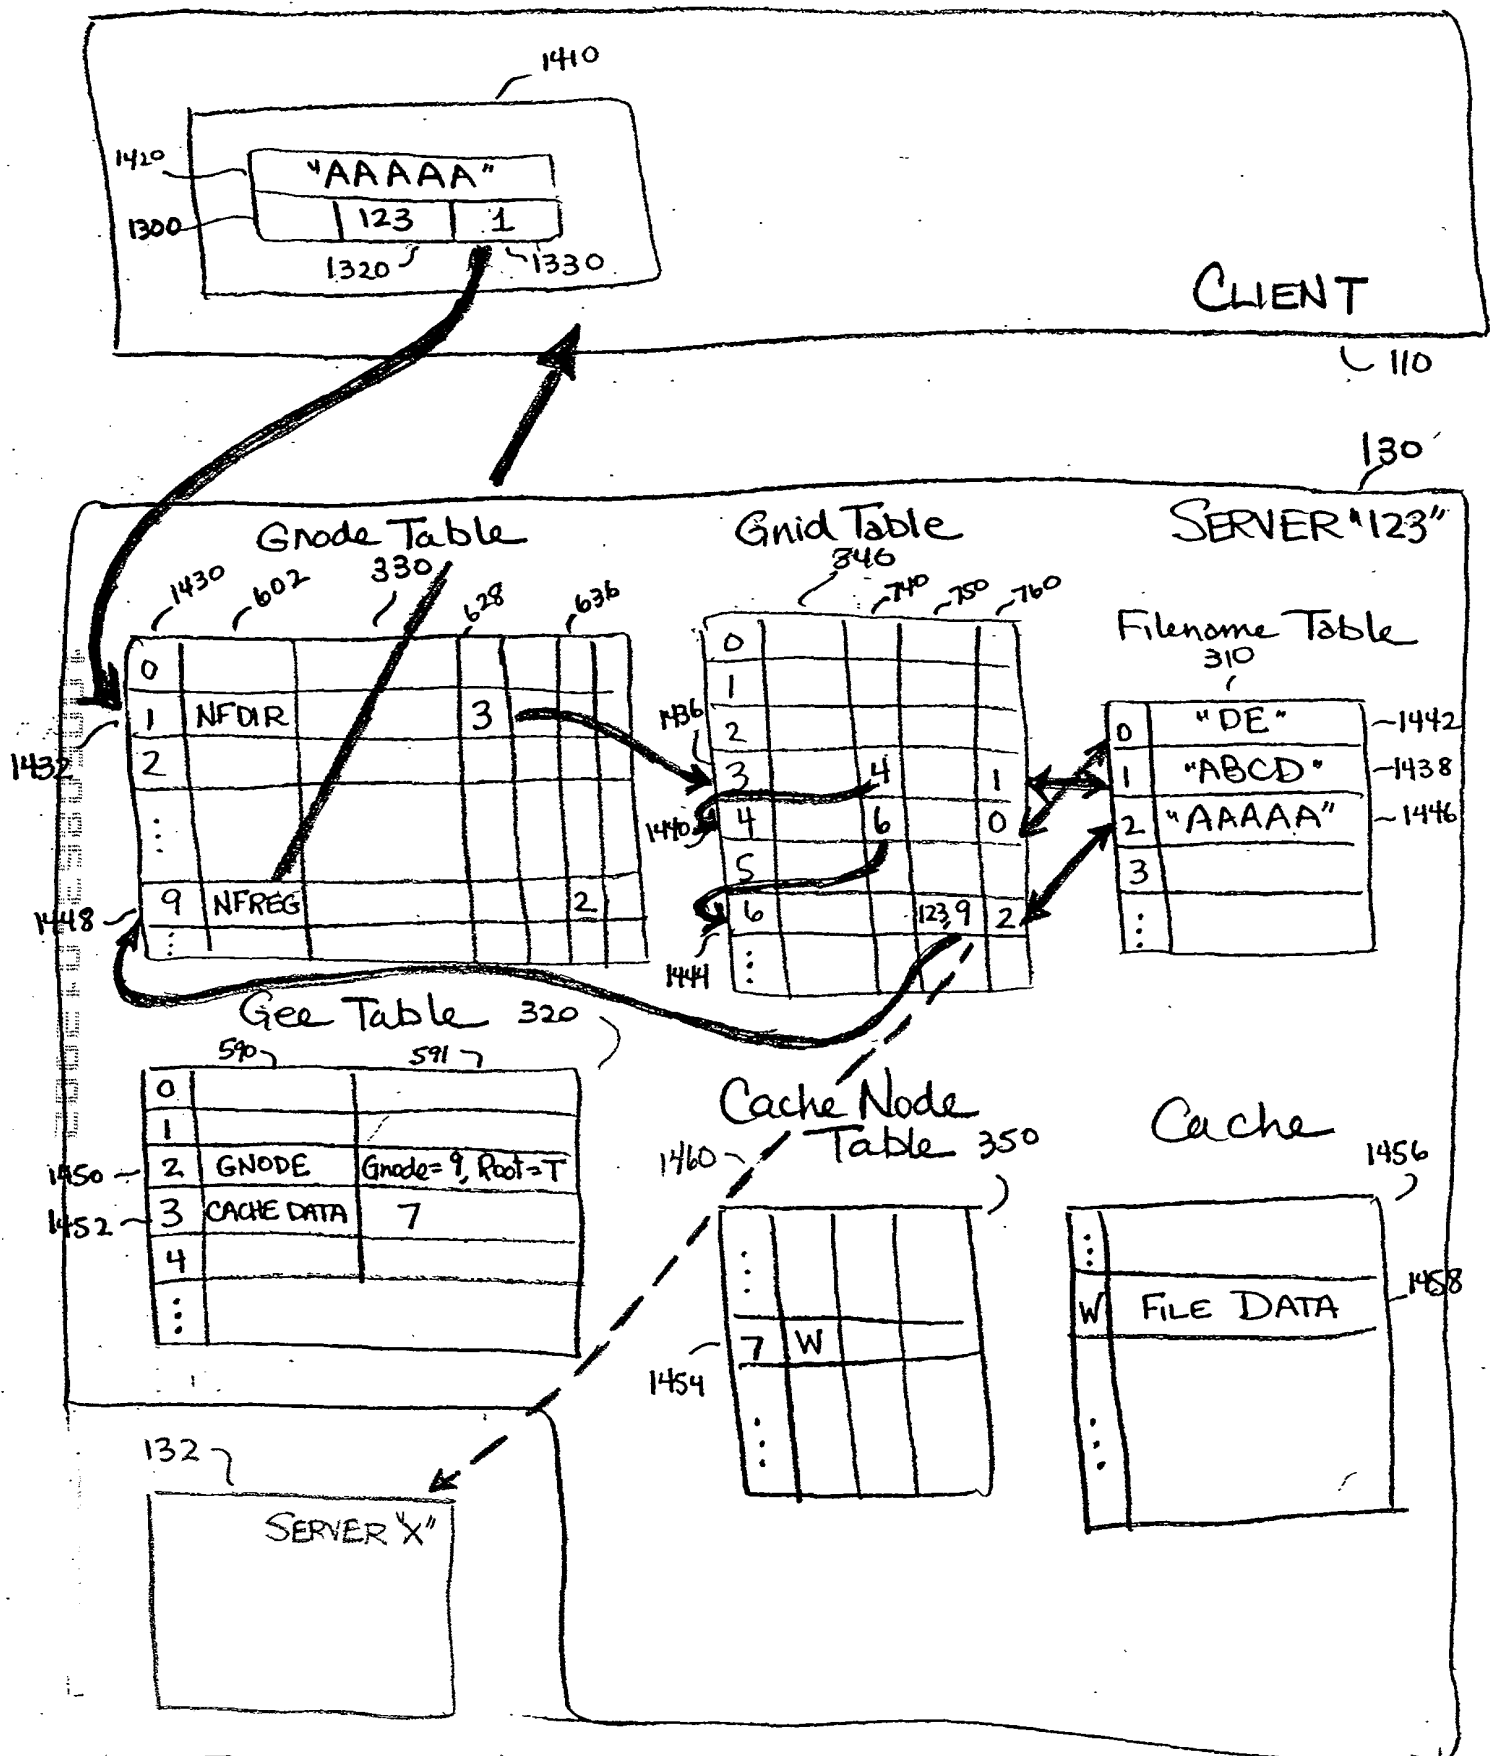 1410
1420
"AAAAA"
1300
123 1
1320 1330
CLIENT
110
130
SERVER "123"
Gnode Table
1430 602 330 628 636
0
1 NFDIR 3
1432
2
⋮
9 NFREG 2
1448
⋮
Gnid Table
346
740 750 760
0
1
1436
2
3 4 1
1440
4 6 0
5
6 123,9 2
1444
⋮
Filename Table
310
0 "DE" 1442
1 "ABCD" 1438
2 "AAAAA" 1446
3
⋮
Gee Table 320
590 591
0
1
1450 2 GNODE Gnode=9, Root=T
1452 3 CACHE DATA 7
4
⋮
Cache Node
Table 350
1460
⋮
7 W
1454
⋮
Cache
1456
⋮
W FILE DATA 1458
⋮
132
SERVER "X"